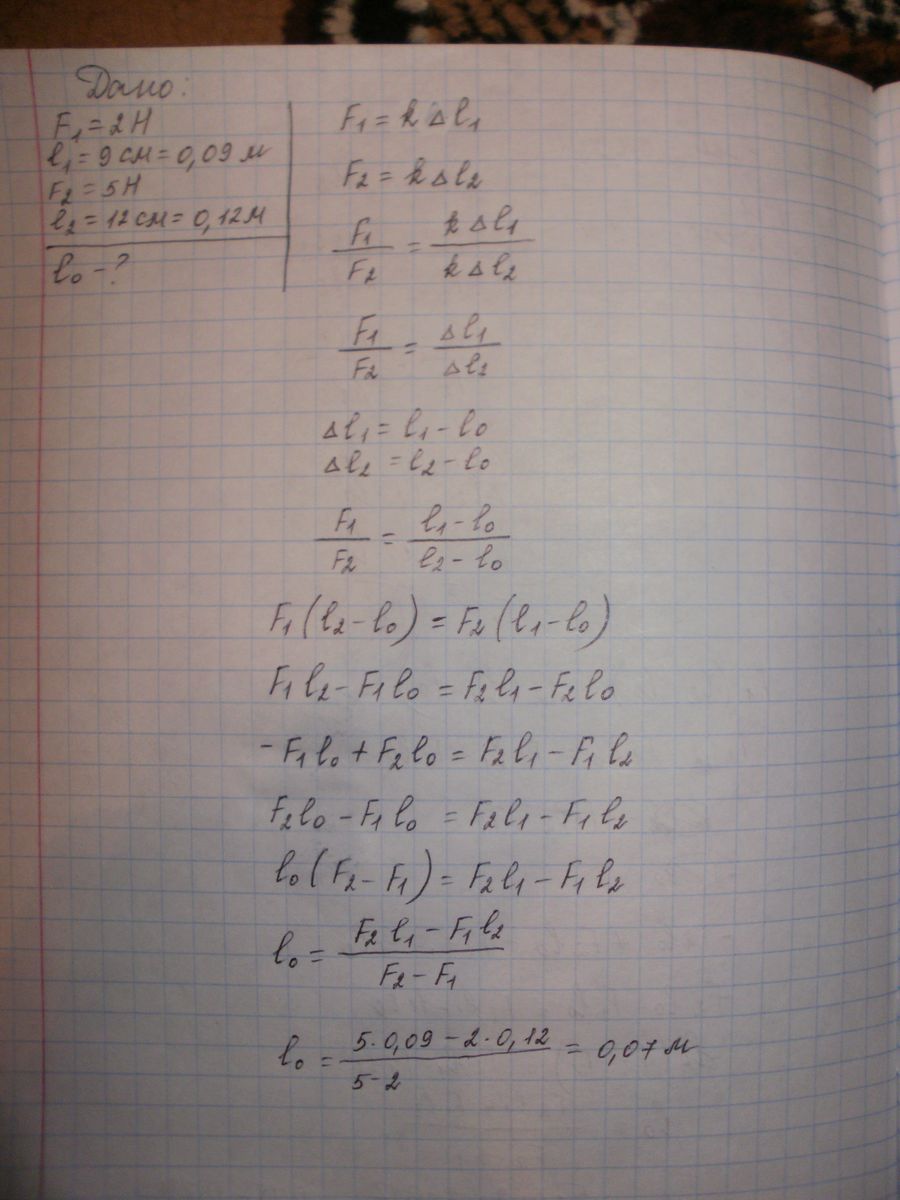 Дано:
F₁ = 2 Н
l₁ = 9 см = 0,09 м
F₂ = 5Н
l₂ = 12 см = 0,12 м
l₀ - ?
F₁ = k Δl₁
F₂ = k Δl₂
F₁/F₂ = k Δl₁/k Δl₂
F₁/F₂ = Δl₁/Δl₂
Δl₁ = l₁ - l₀
Δl₂ = l₂ - l₀
F₁/F₂ = l₁ - l₀/l₂ - l₀
F₁(l₂ - l₀) = F₂(l₁ - l₀)
F₁l₂ - F₁l₀ = F₂l₁ - F₂l₀
-F₁l₀ + F₂l₀ = F₂l₁ - F₁l₂
F₂l₀ - F₁l₀ = F₂l₁ - F₁l₂
l₀(F₂ - F₁) = F₂l₁ - F₁l₂
l₀ = F₂l₁ - F₁l₂/F₂ - F₁
l₀ = 5·0,09 - 2·0,12/5-2 = 0,07 м